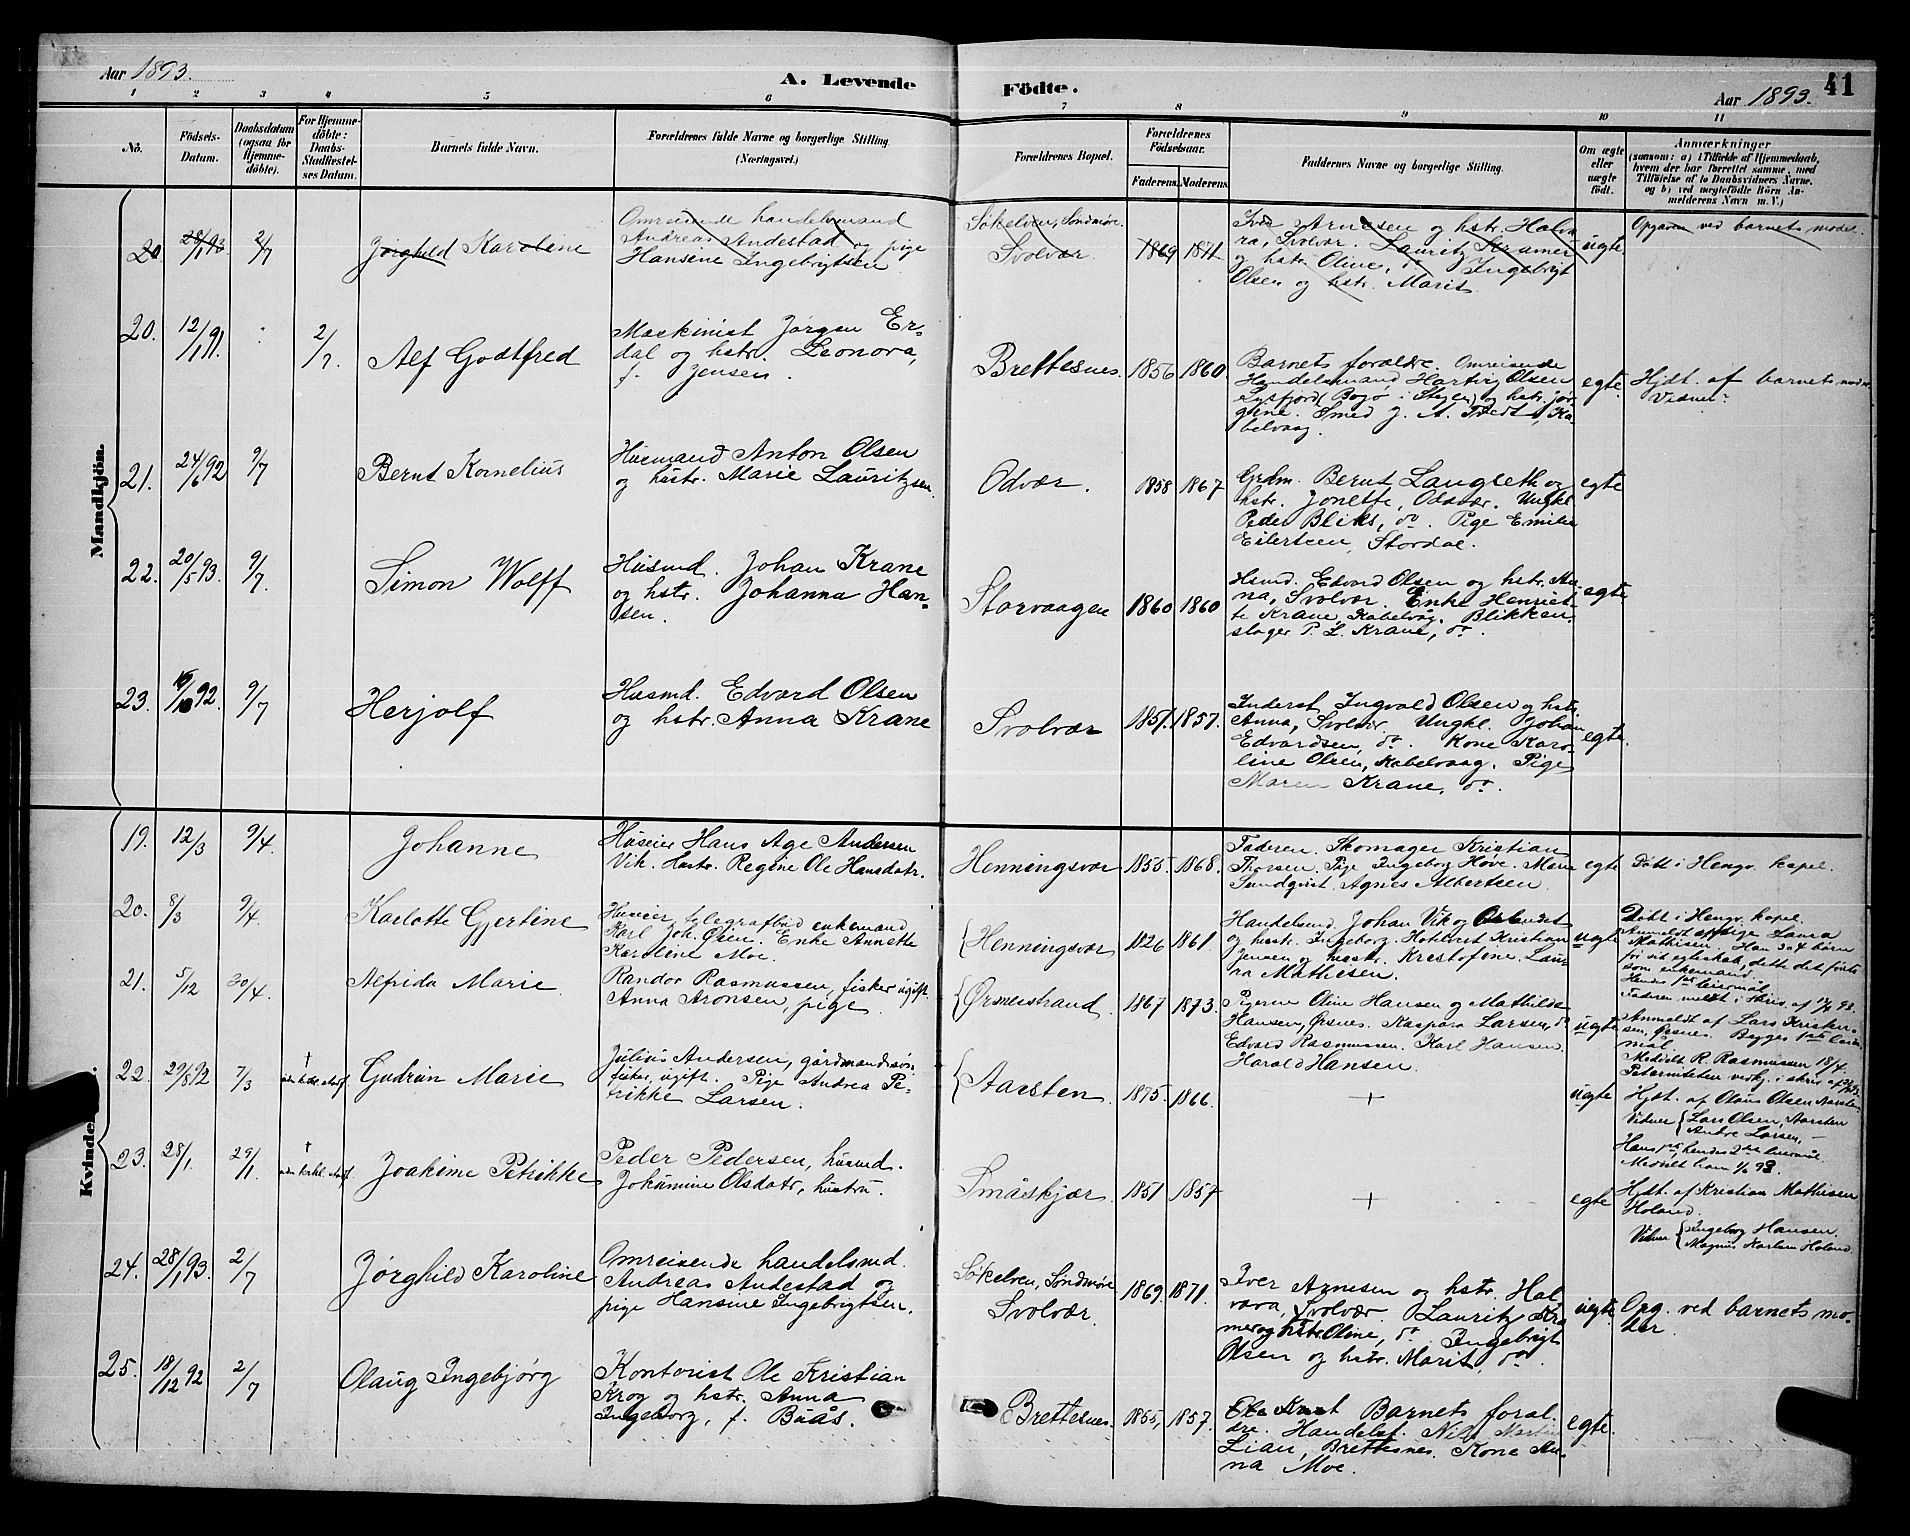 Aar 1893.
A. Levende
Födte.
Aar 1893.
41
1 2 3 4 5 6 7 8 9 10 11
No.
Födsels-
Datum.
Daabsdatum
(ogsaa for
Hjemme-
döbte).
For Hjemme-
döbte:
Daabs-
Stadfæstel-
ses Datum.
Barnets fulde Navn.
Forældrenes fulde Navne og borgerlige Stilling.
(Næringsvei.)
Forældrenes Bopæl.
Forældrenes
Födselsaar.
Faderens. Moderens.
Faddernes Navne og borgerlige Stilling.
Om ægte
eller
uægte
födt.
Anmærkninger
(saasom: a) i Tilfælde af Hjemmedaab,
hvem der har forrettet samme, med
Tilföielse af to Daabsvidners Navne,
og b) ved uægtefödte Börn An-
melderens Navn m. V.)
Mandkjön.
20 28/1 93. 2/7
Jørghild Karoline
Omreisende handelsmand
Andreas Andestad og pige
Hansine Ingebrigtsen
Søkelven, Søndmøre.
Svolvær.
1869 1871
Iver Arnesen og hstr. Halva-
ra, Svolvær. Lauritz Kramer
og hstr. Oline, do Ingebrigt
Olsen og hstr. Marit.
uegte.
Opgaven ved barnets moder.
20. 12/1 91. 2/7.
Alf Godtfred
Maskinist Jørgen Er-
dal og hstr. Leonora,
f. Jensen.
Brettesnes. 1856 1860.
Barnets forældre. Omreisende
Handelsmand Hartvig Olsen
Lysfjord (Bogø i Stegen) og hstr. Jør-
gine. Smed J. A. Tvedt, Ka-
belvaag.
egte.
Hjdt. af barnets moder.
Vidner:
21. 24/6 92 9/7
Bernt Kornelius
Husmand Anton Olsen
og hustr. Marie Lauritzsen.
Odvær. 1858 1867
Grdm. Bernt Langseth og
hstr. Jonette, Odvær. Ungkl.
Peder Bliks, do. Pige Emilie
Eilertsen, Stordal.
egte
22. 20/5 93. 9/7.
Simon Wolff
Husmd. Johan Krane
og hstr. Johanna Han-
sen.
Storvaagen 1860 1860
Hsmd. Edvard Olsen og hstr. An-
na, Svolvær. Enke Henriet-
te Krane, Kabelvåg. Blikken-
slager P. L. Krane, do.
egte
23. 92. 9/7
Herjolf
Husmd. Edvard Olsen
og hstr. Anna Krane
Svolvær 1851. 1857.
Inderst Ingvald Olsen og hstr.
Anna, Svolvær. Ungkl. Johan
Edvardsen, do. Kone Karo-
line Olsen, Kabelvaag. Pige
Maren Krane, do.
egte.
Kvindekj.
19. 12/3 9/4.
Johanne
Huseier Hans Age Andersen
Vik. Hustr. Regine Ole Hansdatr.
Henningsvær 1855. 1868.
Faderen. Thomager Kristian
Thorsen. Pige Ingeborg Hove. Marie
Sundqvist. Agnes Albertsen
egte
Døbt i Hengv. kapel.
20. 8/3 9/4
Karlotte Gjertine
Huseier, telegrafbud enkemand
Karl Joh. Olsen. Enke Annette
Karoline Moe.
Henningsvær 1826 1861.
Handelsmd. Johan Vik og
og hustr. Ingeborg. Hotelvert Kristian
Jensen og hustr. Kristofine. Lau-
ra Mathisen.
uegte
Døbt i Hengv. kapel.
Anmeldt af pige Laura
Mathisen. Han 3 á 4 børn
før sit egteskab, dette det første
som enkemand.
Hendes 1ste leiermål.
21. 5/12 30/4.
Alfrida Marie
Randor Rasmussen, fisker ugift.
Anna Aronsen, pige.
Ørsnesstrand 1867 1873.
Pigerne Oline Hansen og Mathilde
Hansen, Ørsnes. Kaspara Larsen, do
Edvard Rasmussen. Karl Hansen.
Harald Hansen.
uegte
Anmeldt af Lars Kristen-
sen, Ørsnes. Begges 1ste leier-
mål
Meddelt R. Rasmussen 18/4.
22. 29/8 92 7/3
Gudrun Marie
Julius Andersen, gårdmandssøn
fisker, ugift. Pige Andrea Pe-
trikke Larsen.
Aarsten 1875. 1866.
+
uegte
Hjdt. af Olaus Olsen Aarsten
Vidner Lars Olsen, Aarsten
Andre Larsen, —
Hans 1ste, hendes 2det leiermål.
23. 28/1. 29/1
Joakime Petrikke
Peder Pedersen, husmd.
Johanne Olsdatr, hustru.
Småskjær 1851 1857
+
egte
Hjdt. af Kristian Mathisen
Holand.
Vidner Ingeborg Hansen.
Magnus Karlsen Holand.
24. 28/1 93. 2/7
Jørghild Karoline
Omreisende handelsmd.
Andreas Andestad og
pige Hansine Ingebrigtsen.
Søkelven, Søndmøre
Svolvær.
1869. 1871.
Iver Arnesen og hstr. Hal-
vara, Svolvær. Lauritz Kra-
mer og hstr. Oline, do. Ingebrigt
Olsen og hstr. Marit, do.
uegte.
Opg. ved barnets mo-
der.
25. 18/12 92 2/7
Olaug Ingebjørg
Kontorist Ole Kristian
Krog og hstr. Anna
Ingeborg, f. Buås.
Brettesnes. 1855, 1857.
Barnets foræl-
dre. Handelsf. Nils Martin
Lian, Brettesnes. Kone An-
na Moe.
egte.